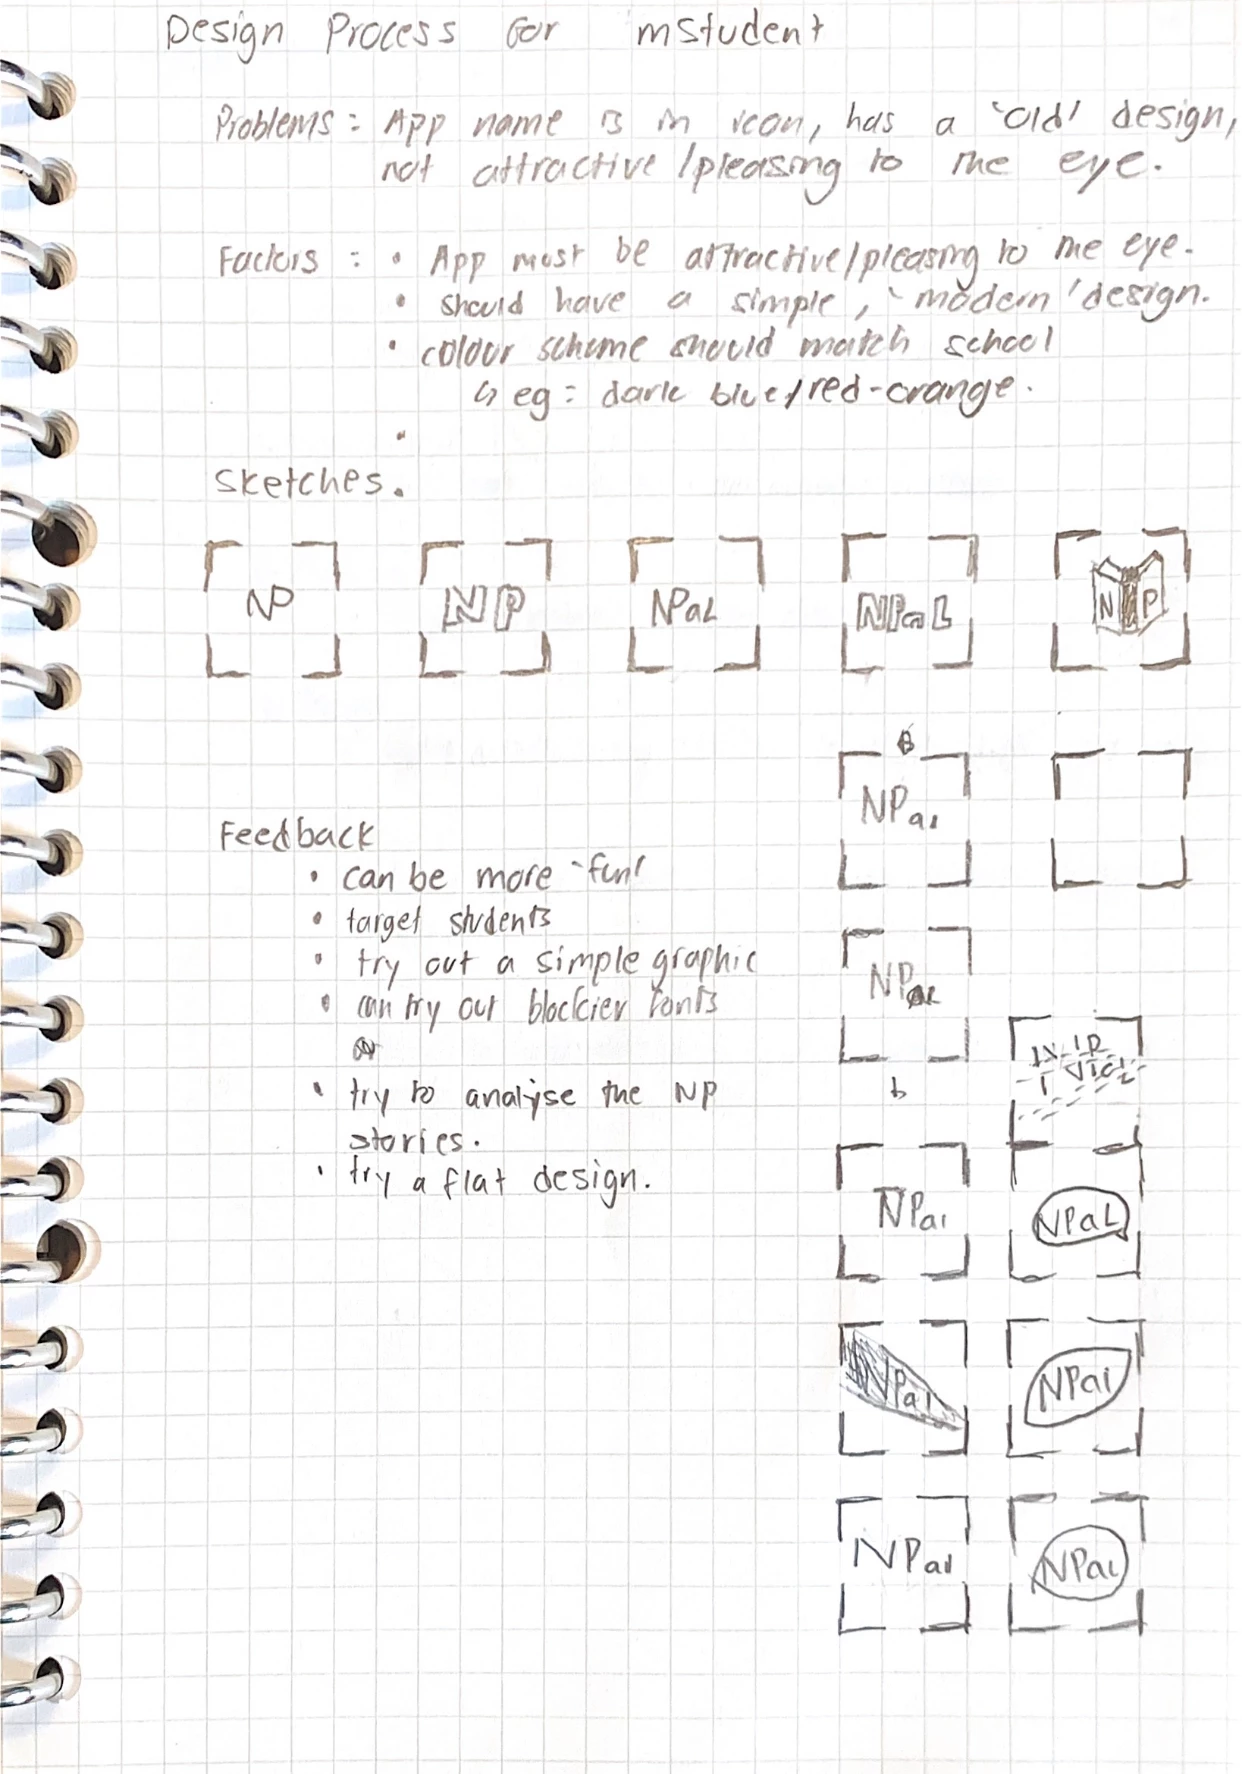 Design Process for mStudent
Problems: App name is in icon, has a 'old' design,
not attractive/pleasing to the eye.
Factors: • App must be attractive/pleasing to the eye.
• should have a simple, 'modern' design.
• colour scheme should match school
↳ eg: dark blue/red-orange.
•
Sketches.
NP NP NPaL NPaL N P
NPal
Feedback
• can be more 'fun'
• target students
• try out a simple graphic
• can try out blockier fonts
• try to analyse the NP
stories.
• try a flat design.
NPaL
b
NPal NPaL
NPal NPal
NPal NPal